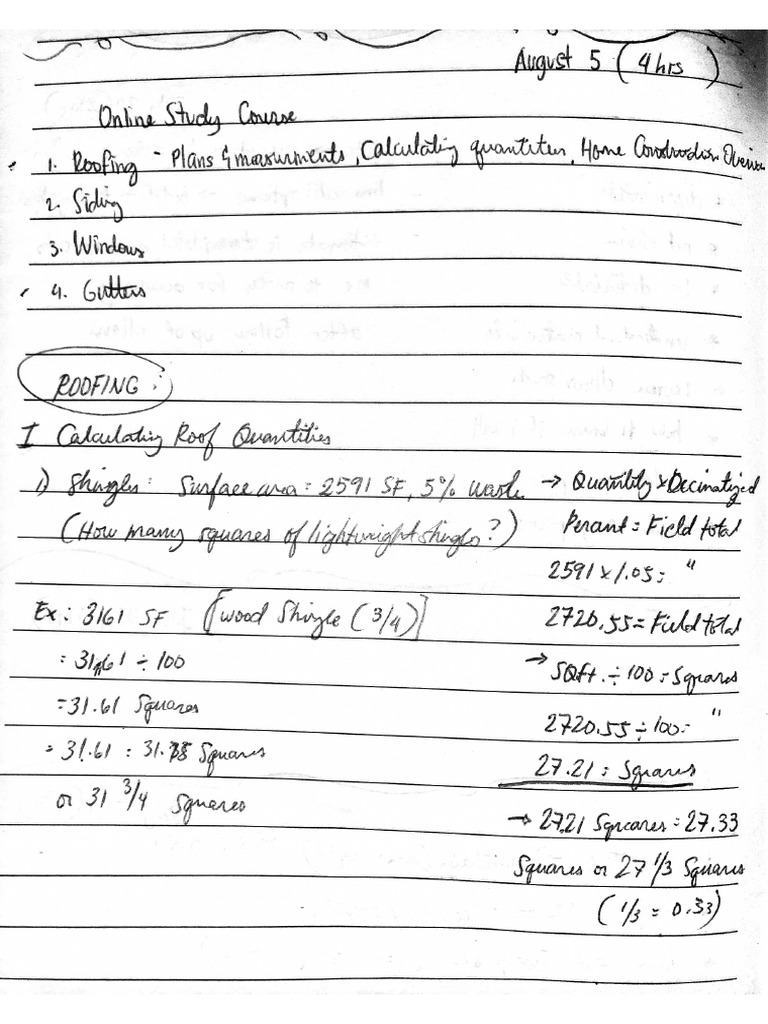 August 5 (4 hrs)
Online Study Course
1. Roofing - Plans & measurments, Calculating quantities, Home Construction
2. Siding
3. Windows
4. Gutters
ROOFING:
I Calculating Roof Quantities
1) Shingles: Surface area = 2591 SF, 5% waste
(How many squares of lightweight shingles?)
Ex: 3161 SF [wood Shingle (3/4)]
= 3161 ÷ 100
= 31.61 Squares
= 31.61 = 31.75 Squares
or 31 3/4 Squares
→ Quantity x Decimatized
Percant = Field total
2591 x 1.05 = "
2720.55 = Field total
→ SQft. ÷ 100 = Squares
2720.55 ÷ 100 = "
27.21 = Squares
→ 27.21 Squares = 27.33
Squares or 27 1/3 Squares
(1/3 = 0.33)